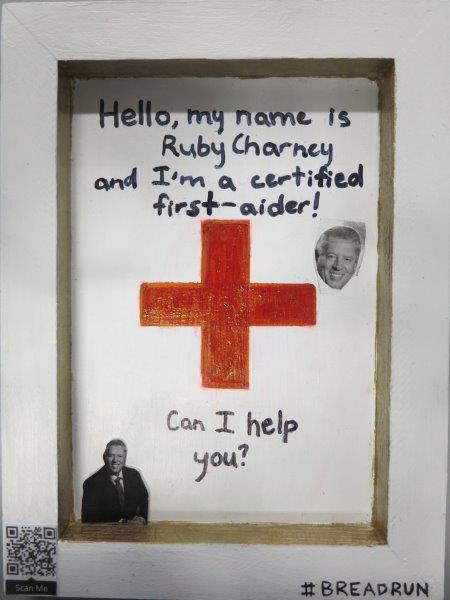 Hello, my name is
Ruby Charney
and I'm a certified
first-aider!
Can I help
you?
Scan Me
#BREADRUN